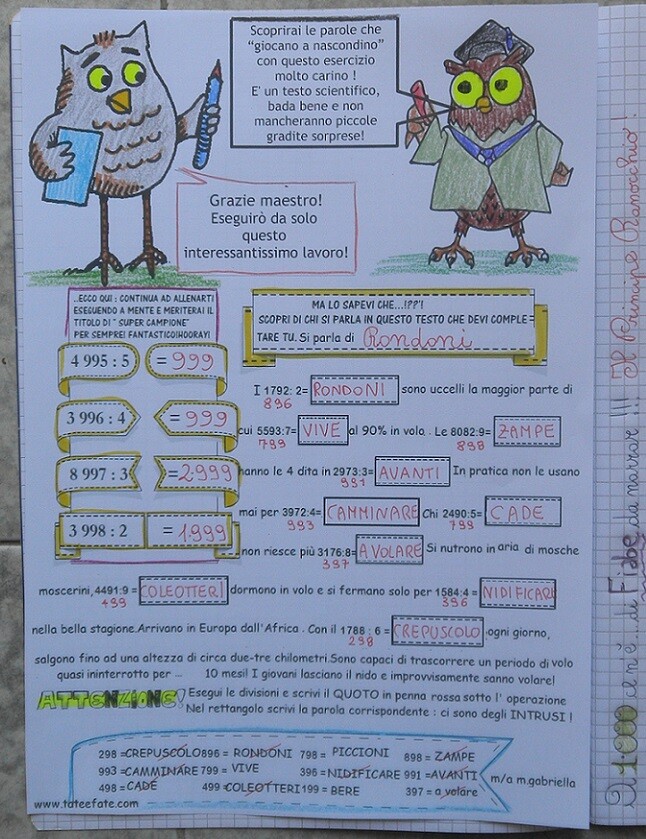 Scoprirai le parole che
"giocano a nascondino"
con questo esercizio
molto carino !
E' un testo scientifico,
bada bene e non
mancheranno piccole
gradite sorprese!
Grazie maestro!
Eseguirò da solo
questo
interessantissimo lavoro!
...ECCO QUI : CONTINUA AD ALLENARTI
ESEGUENDO A MENTE E MERITERAI IL
TITOLO DI " SUPER CAMPIONE"
PER SEMPRE! FANTASTICO!HOORAY!
4 995 : 5 = 999
3 996 : 4 = 999
8 997 : 3 = 2999
3 998 : 2 = 1.999
MA LO SAPEVI CHE...!??"!
SCOPRI DI CHI SI PARLA IN QUESTO TESTO CHE DEVI COMPLE=
TARE TU. Si parla di Rondoni
I 1792: 2= RONDONI sono uccelli la maggior parte di
896
cui 5593:7= VIVE al 90% in volo. . Le 8082:9= ZAMPE
799 898
hanno le 4 dita in 2973:3= AVANTI In pratica non le usano
991
mai per 3972:4= CAMMINARE Chi 2490:5= CADE
993 799
non riesce più 3176:8= A VOLARE Si nutrono in aria di mosche
397
moscerini, 4491:9 = COLEOTTERI dormono in volo e si fermano solo per 1584:4 = NIDIFICARE
499 396
nella bella stagione.Arrivano in Europa dall'Africa . Con il 1788 : 6 = CREPUSCOLO ogni giorno,
298
salgono fino ad una altezza di circa due-tre chilometri.Sono capaci di trascorrere un periodo di volo
quasi ininterrotto per ... 10 mesi! I giovani lasciano il nido e improvvisamente sanno volare!
ATTENZIONE! Esegui le divisioni e scrivi il QUOTO in penna rossa sotto l' operazione
Nel rettangolo scrivi la parola corrispondente : ci sono degli INTRUSI !
298 =CREPUSCOLO 896 = RONDONI 798 = PICCIONI 898 = ZAMPE
993 =CAMMINARE 799 = VIVE 396 =NIDIFICARE 991 =AVANTI
498 =CADE 499 =COLEOTTERI 199 = BERE 397 = a volare
m/a m.gabriella
www.tateefate.com
Il Principe Ranocchio!
di Fiabe da narrar !!!